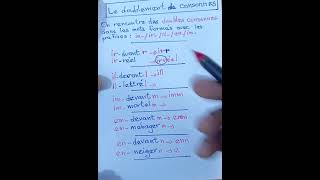 Le doublement de consonnes
On rencontre des doubles consonnes
dans les mots formés avec les
préfixes : in-/im-/il-/en-/im-
ir-devant r → irr
ir-réel irréel
il devant l → ill
il-lettré l →
im- devant m → imm
im-mortel m →
em- devant m → emm
em-ménager m →
en- devant n → enn
en-neiger n → e